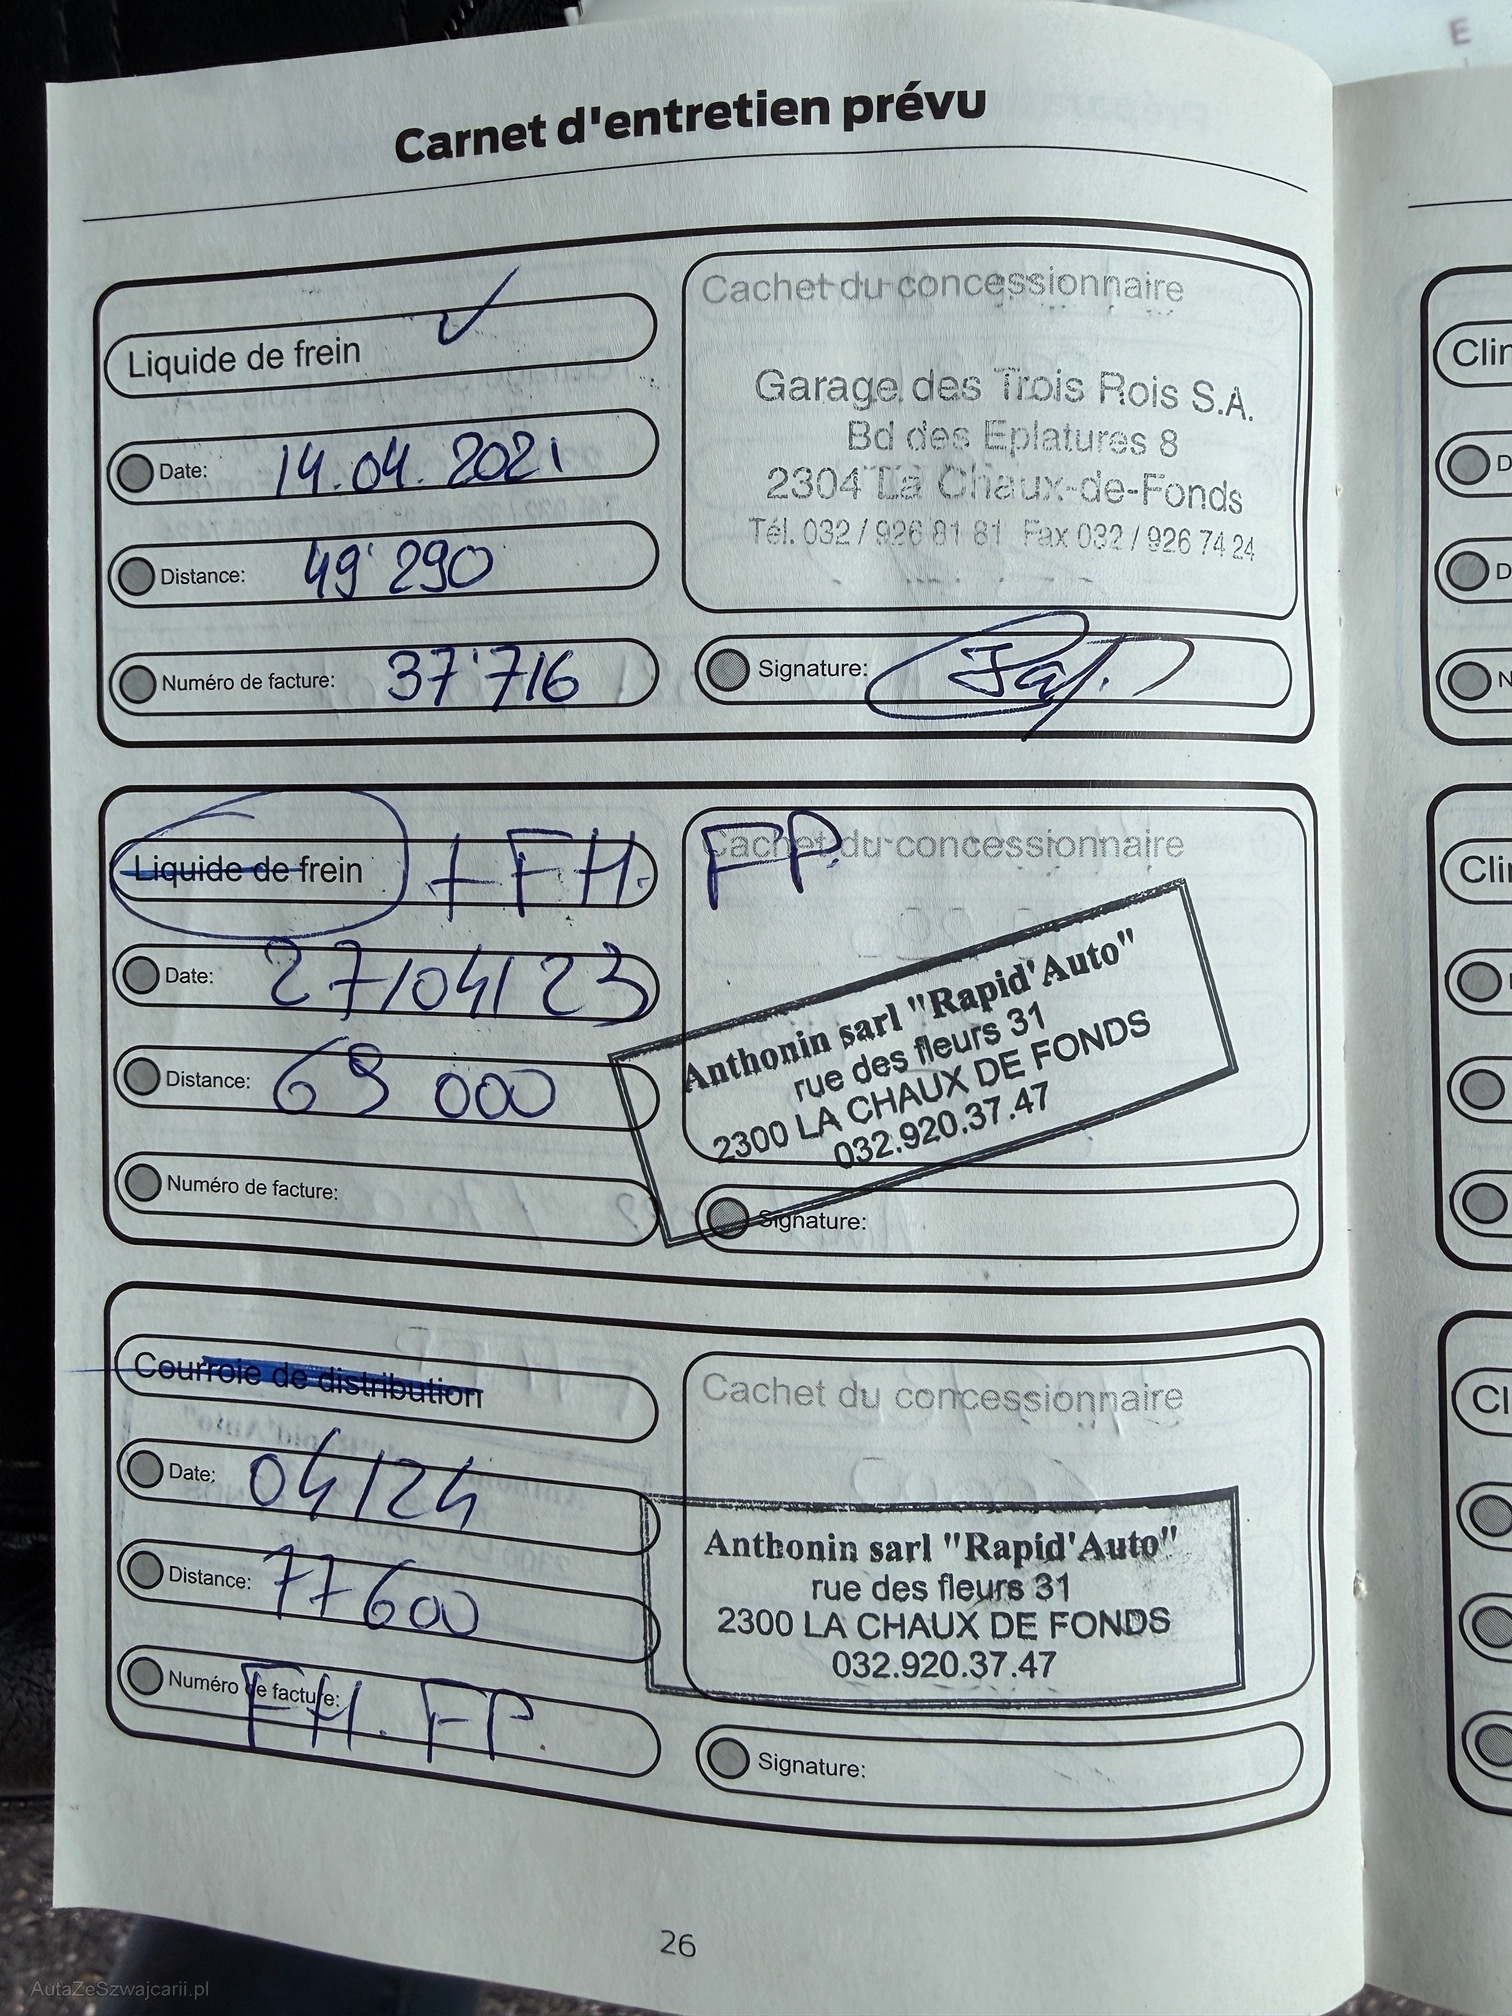 E
Carnet d'entretien prévu
Liquide de frein ✓
Date: 14.04.2021
Distance: 49'290
Numéro de facture: 37'716
Cachet du concessionnaire
Garage des Trois Rois S.A.
Bd des Eplatures 8
2304 La Chaux-de-Fonds
Tél. 032 / 926 81 81 Fax 032 / 926 74 24
Signature:
Liquide de frein + FH. FP.
Date: 27/04/23
Distance: 69 000
Numéro de facture:
Cachet du concessionnaire
Anthonin sarl "Rapid'Auto"
rue des fleurs 31
2300 LA CHAUX DE FONDS
032.920.37.47
Signature:
Courroie de distribution
Date: 04/24
Distance: 77600
Numéro de facture: FH. FP.
Cachet du concessionnaire
Anthonin sarl "Rapid'Auto"
rue des fleurs 31
2300 LA CHAUX DE FONDS
032.920.37.47
Signature:
26
Clim
D
D
N
Cli
Cl
AutaZeSzwajcarii.pl